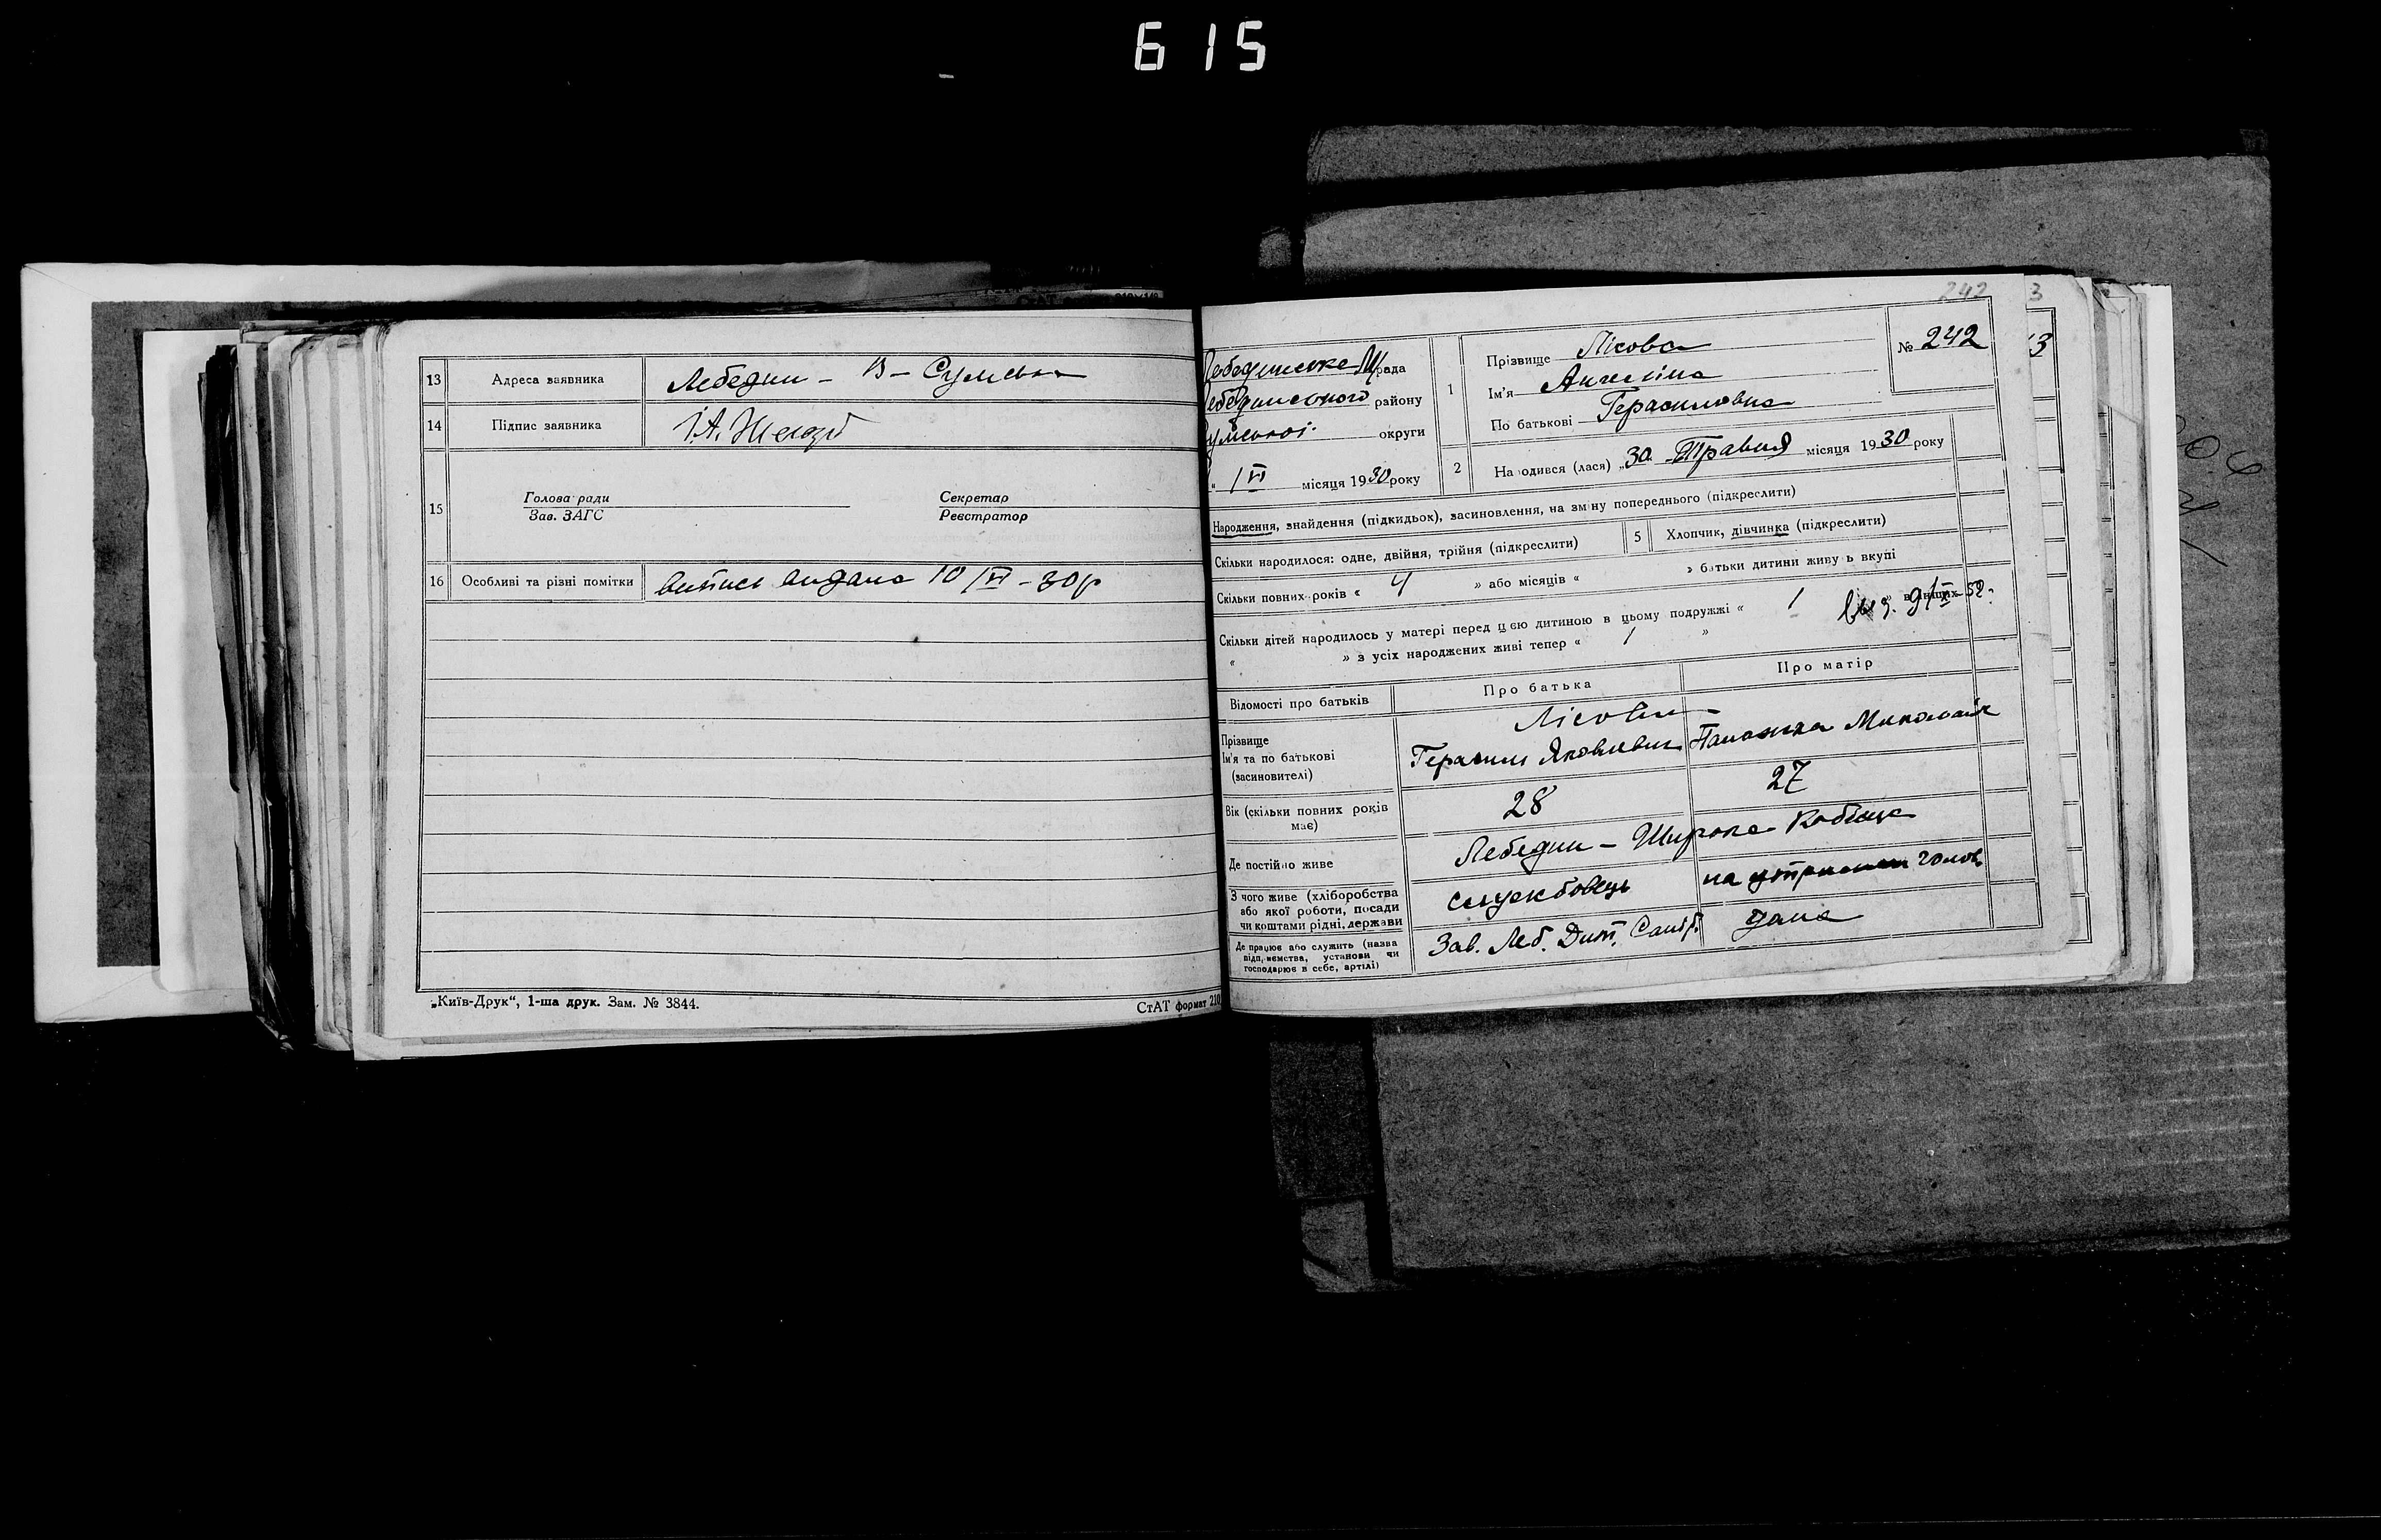 615
13 Адреса заявника Лебедин - В - Сумська
14 Підпис заявника
15 Голова ради Секретар
Зав. ЗАГС Реєстратор
16 Особливі та різні помітки випись видана 10/VI - 30р
„Київ-Друк“, 1-ша друк. Зам. № 3844. СтАТ формат 210
242 3
Лебединське М рада
Лебединського району
Сумської округи
„ 1 VI місяця 1930 року
1 Прізвище Лісова
Ім'я Ангеліна
По батькові Герасимовна
№ 242
2 Народився (лася) „30 Травня місяця 1930 року
Народження, знайдення (підкидьок), засиновлення, на зміну попереднього (підкреслити)
Скільки народилося: одне, двійня, трійня (підкреслити) 5 Хлопчик, дівчинка (підкреслити)
Скільки повних років « 4 » або місяців « » батьки дитини живуть вкупі
Скільки дітей народилось у матері перед цією дитиною в цьому подружжі « 1 » в інших
« » з усіх народжених живі тепер « 1 »
Відомості про батьків Про батька Про матір
Прізвище Лісови
Ім'я та по батькові Герасим Яковлевич
(засиновителі)
Вік (скільки повних років має) 28 27
Де постійно живе Лебедин - Широка
З чого живе (хліборобства службовець на утриман голов
або якої роботи, посади
чи коштами рідні, держави
Де працює або служить (назва Зав. Леб. Дит. дама
підприємства, установи чи
господарює в себе, артілі)